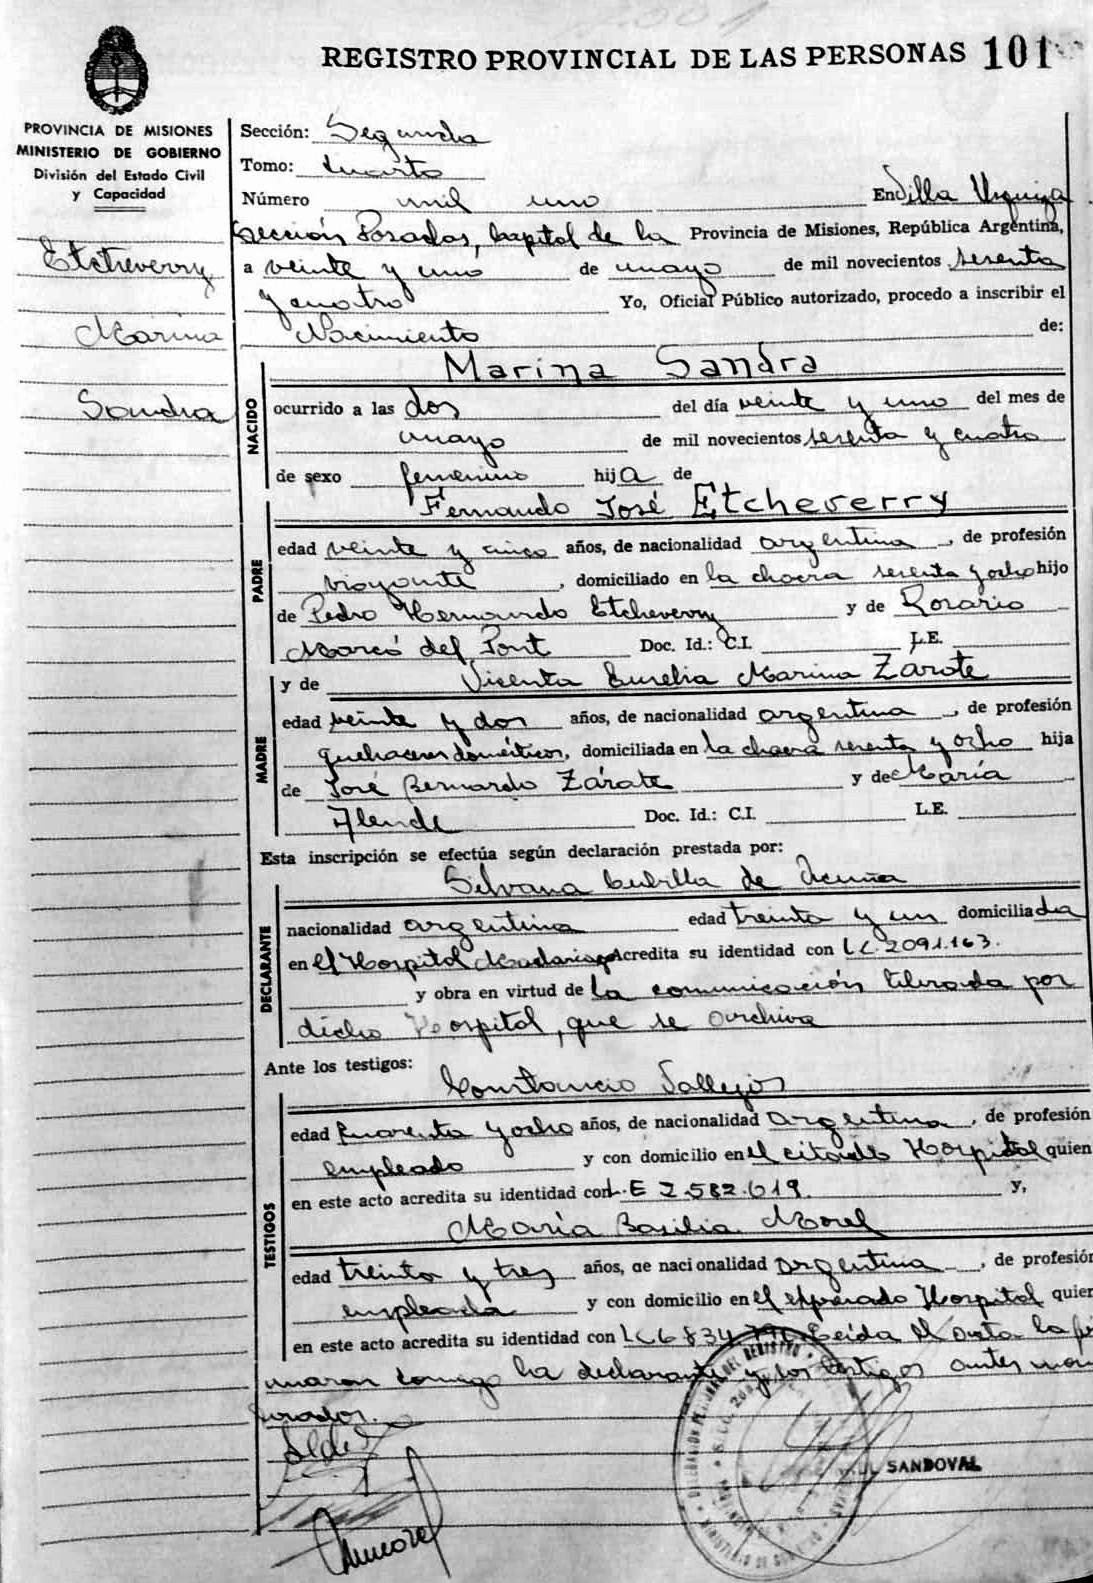 REGISTRO PROVINCIAL DE LAS PERSONAS 101
PROVINCIA DE MISIONES
MINISTERIO DE GOBIERNO
División del Estado Civil
y Capacidad
Etcheverry
Marina
Sandra
Sección: Segunda
Tomo: cuarto
Número mil uno En Villa Urquiza
Sección Posadas, Capital de la Provincia de Misiones, República Argentina,
a veinte y uno de mayo de mil novecientos sesenta
y cuatro Yo, Oficial Público autorizado, procedo a inscribir el
Nacimiento de:
NACIDO
Marina Sandra
ocurrido a las dos del día veinte y uno del mes de
mayo de mil novecientos sesenta y cuatro
de sexo femenino hija de
PADRE
Fernando José Etcheverry
edad veinte y cinco años, de nacionalidad argentina, de profesión
viajante, domiciliado en la chacra sesenta y ocho hijo
de Pedro Hernando Etcheverry y de Rosario
Marcó del Pont Doc. Id.: C.I. L.E.
MADRE
y de Visenta Eurelia Marina Zarate
edad veinte y dos años, de nacionalidad argentina, de profesión
quehaceres domésticos, domiciliada en la chacra sesenta y ocho hija
de José Bernardo Zárate y de María
Alende Doc. Id.: C.I. L.E.
Esta inscripción se efectúa según declaración prestada por:
DECLARANTE
Silvana Cubilla de Acuña
nacionalidad argentina edad treinta y un domiciliada
en el Hospital Madariaga Acredita su identidad con LC. 2091.163.
y obra en virtud de la comunicación librada por
dicho Hospital, que se archiva
Ante los testigos:
TESTIGOS
Constancio Vallejos
edad cuarenta y ocho años, de nacionalidad argentina, de profesión
empleado y con domicilio en el citado Hospital quien
en este acto acredita su identidad con L.E 2.582.619. y,
María Basilia Morel
edad treinta y tres años, de nacionalidad argentina, de profesión
empleada y con domicilio en el expresado Hospital quien
en este acto acredita su identidad con LC 6834 Leída el acta la fir
maron conmigo la declarante y los testigos antes men
SANDOVAL